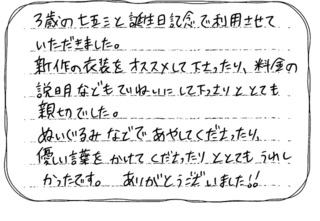 3歳の七五三と誕生日記念で利用させて
いただきました。
新作の衣装をオススメして下さったり、料金の
説明などもていねいにして下さりととても
親切でした。
ぬいぐるみなどであやしてくださったり、
優しい言葉をかけてくださったりととてもうれし
かったです。ありがとうございました!!